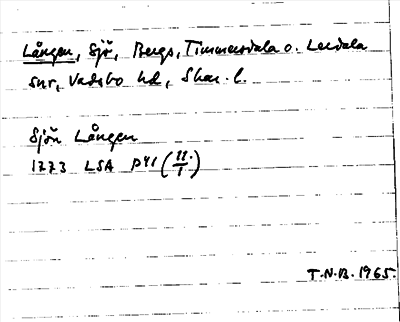 Lången, Sjö, Bergs, Timmersdala o. Lerdala
snr, Vadsbo hd, Skar. l.
Sjön Lången
1773 LSA P41 (11/1)
T.N.B. 1965.